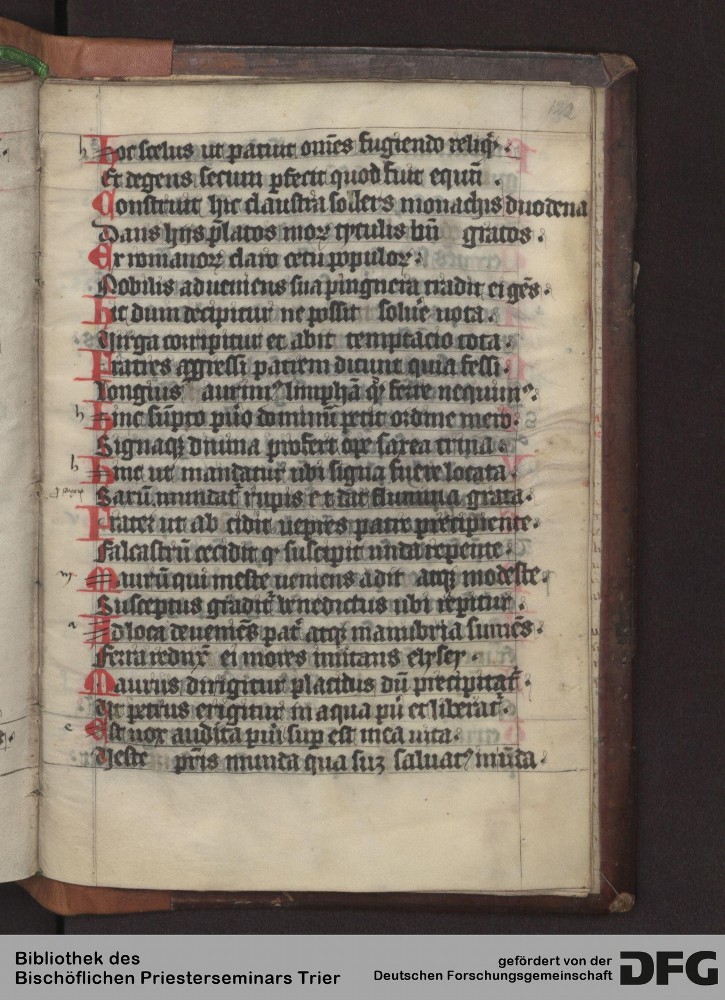 142
h Hoc scelus ut patiut om̄es fugiendo reliq̄ .
Et degens secum ꝑfecit quod fuit equū .
Construit hic claustra sollers monachis duodena
Dans hiis p̄latos moꝝ tytulis bn̄ gratos .
Ex romanoꝝ claro cetu populoꝝ .
Nobilis adueniens sua pingnera tradit ei gēs .
Hic dum decipitur ne possit soluē uota .
Uirga corripitur et abit temptacio tota .
Fratres aggressi patrem dicunt quia fessi .
Longius aurim᷒ limphā qᷓ ferre nequim᷒ .
h Hinc sūpto puo dominū petit ordine meio .
Signaqꝫ diuina profert ope saxea trina .
h Hinc ut mandatur ubi signa fuere locata .
Saxū mundat᷑ rupis et dat flumina grata .
Frater ut ab cidit uepres patre precipiente .
Falcastrū cecidit qᷓ suscipit unda repente .
m Maurū qui meste ueniens adit atqꝫ modeste .
Susceptus gradit᷑ benedictus ubi repitur .
a Ad loca deueniēs pat᷑ atqꝫ manubria sumēs .
Ferra redux̄ ei mores imitans elysey .
Maurus dirigitur placidus dū precipitat᷑ .
Ut petrus erigitur in aqua pu᷑ et liberat᷑ .
e Est uox audita pu᷑i sup est mea uita .
Ueste pr̄is munda qua suꝫ saluat᷒ in ūda .
Bibliothek des
Bischöflichen Priesterseminars Trier
gefördert von der
Deutschen Forschungsgemeinschaft
DFG